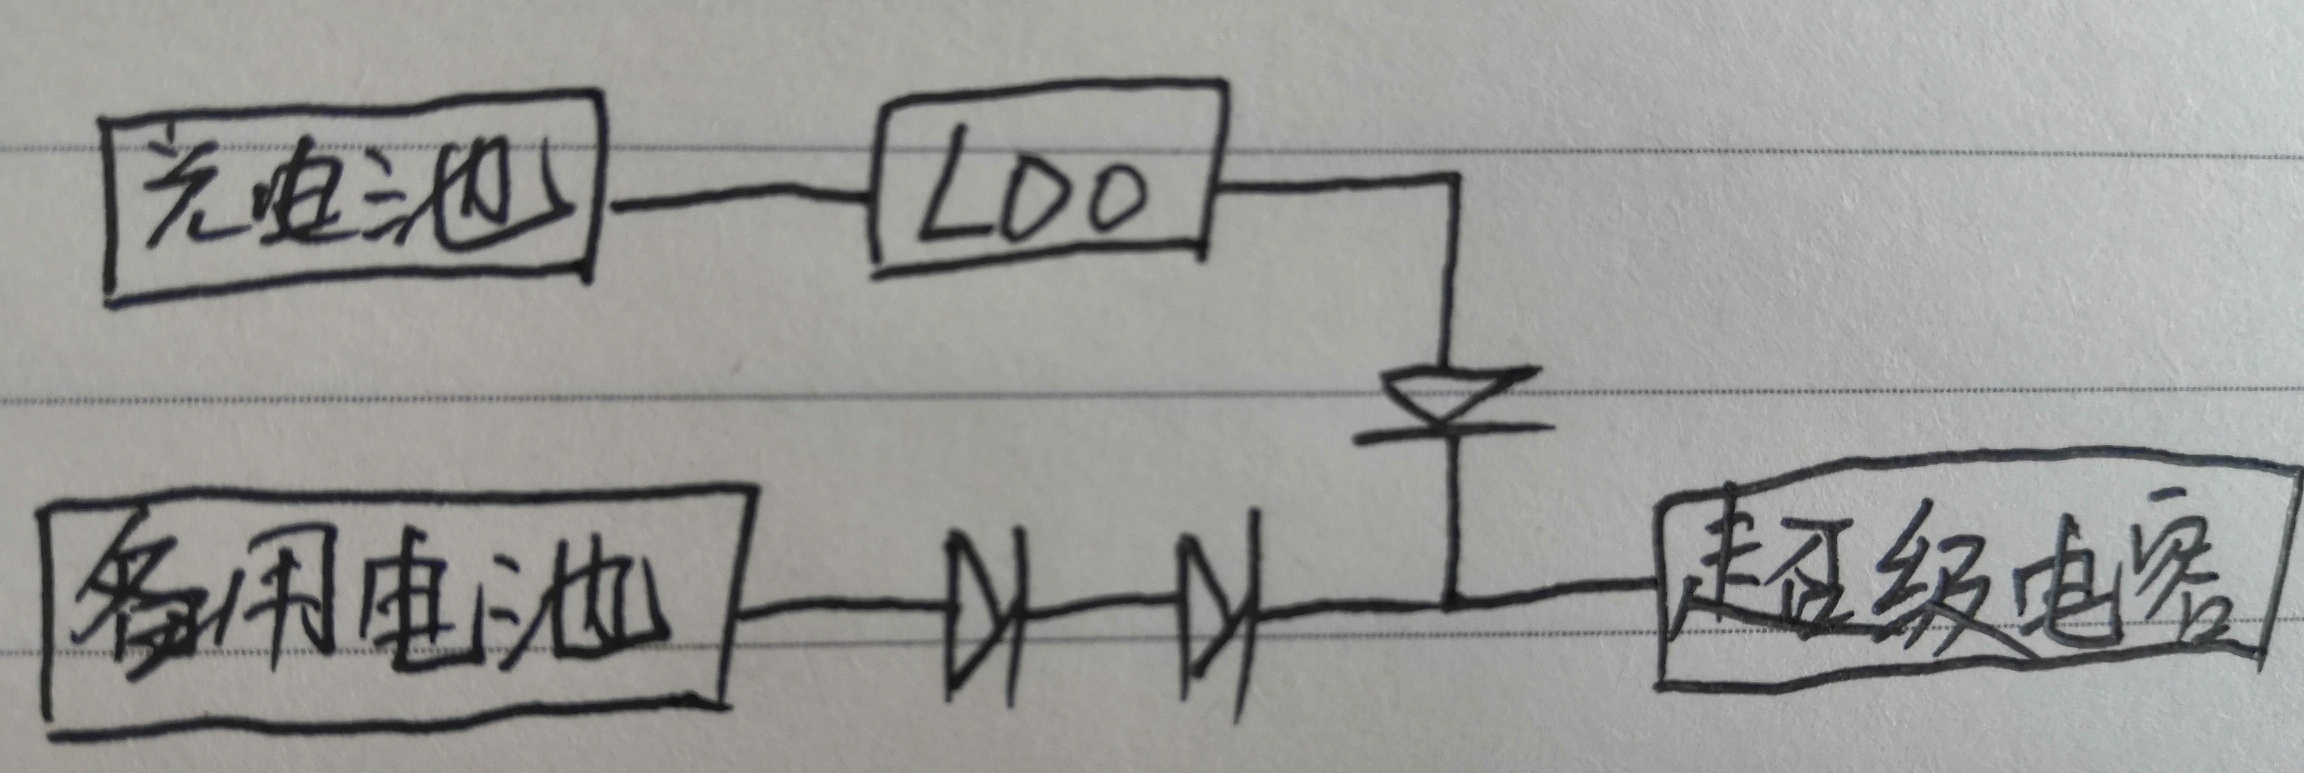 充电池
LDO
备用电池
超级电容